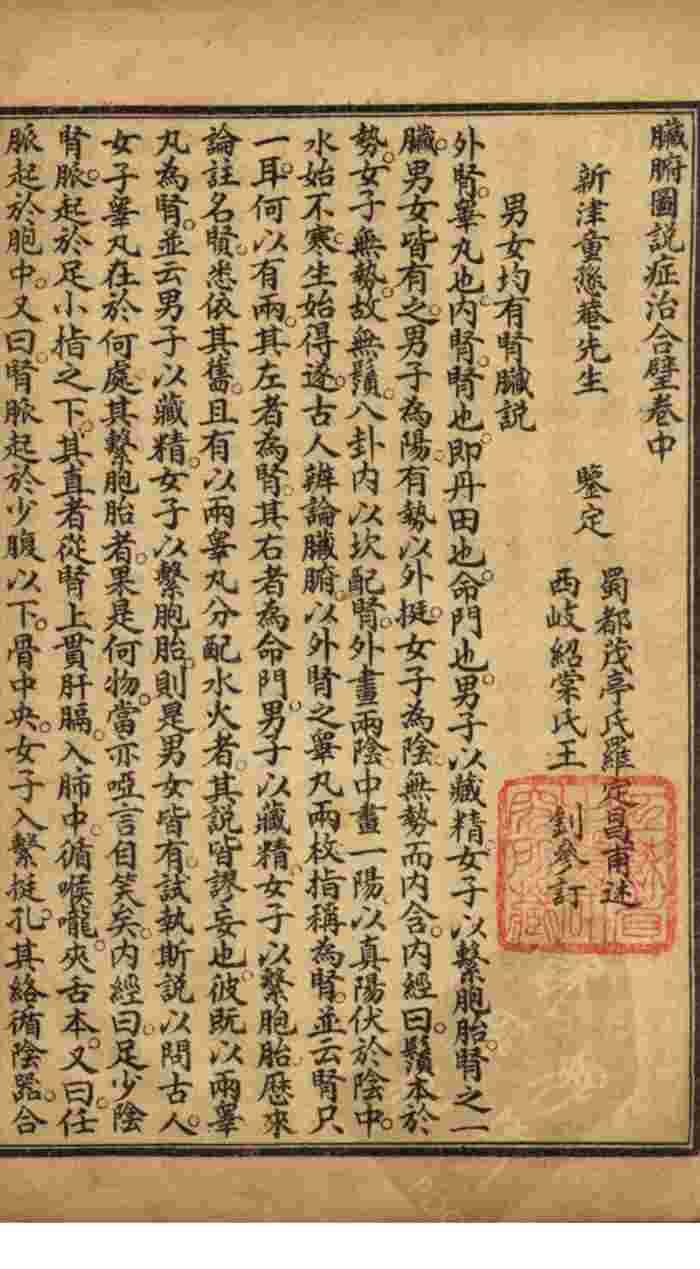 臟腑圖説症治合璧卷中
新津童孫菴先生 鑒定
蜀都茂亭氏羅定昌甫述
西岐紹棠氏王 釗參訂
男女均有腎臟説
外腎。睾丸也。内腎。腎也。即丹田也。命門也。男子以藏精。女子以繫胞胎。腎之一
臟。男女皆有之。男子為陽。有勢以外挺。女子為陰。無勢而内含。内經曰。鬚本於
勢。女子無勢。故無鬚。八卦内以坎配腎。外畫兩陰。中畫一陽。以真陽伏於陰中。
水始不寒。生始得遂。古人辨論臟腑。以外腎之睾丸兩枚。指稱為腎。並云腎只
一耳。何以有兩。其左者為腎。其右者為命門。男子以藏精。女子以繫胞胎。歷來
論註名賢。悉依其舊。且有以兩睾丸分配水火者。其説皆謬妄也。彼既以兩睾
丸為腎。並云男子以藏精。女子以繫胞胎。則是男女皆有。試執斯説以問古人。
女子睾丸在於何處。其繫胞胎者。果是何物。當亦啞言自笑矣。内經曰。足少陰
腎脈。起於足小指之下。其直者。從腎上貫肝膈。入肺中。循喉嚨。夾舌本。又曰。任
脈起於胞中。又曰。腎脈起於少腹以下。骨中央。女子入繫挺孔。其絡循陰器。合